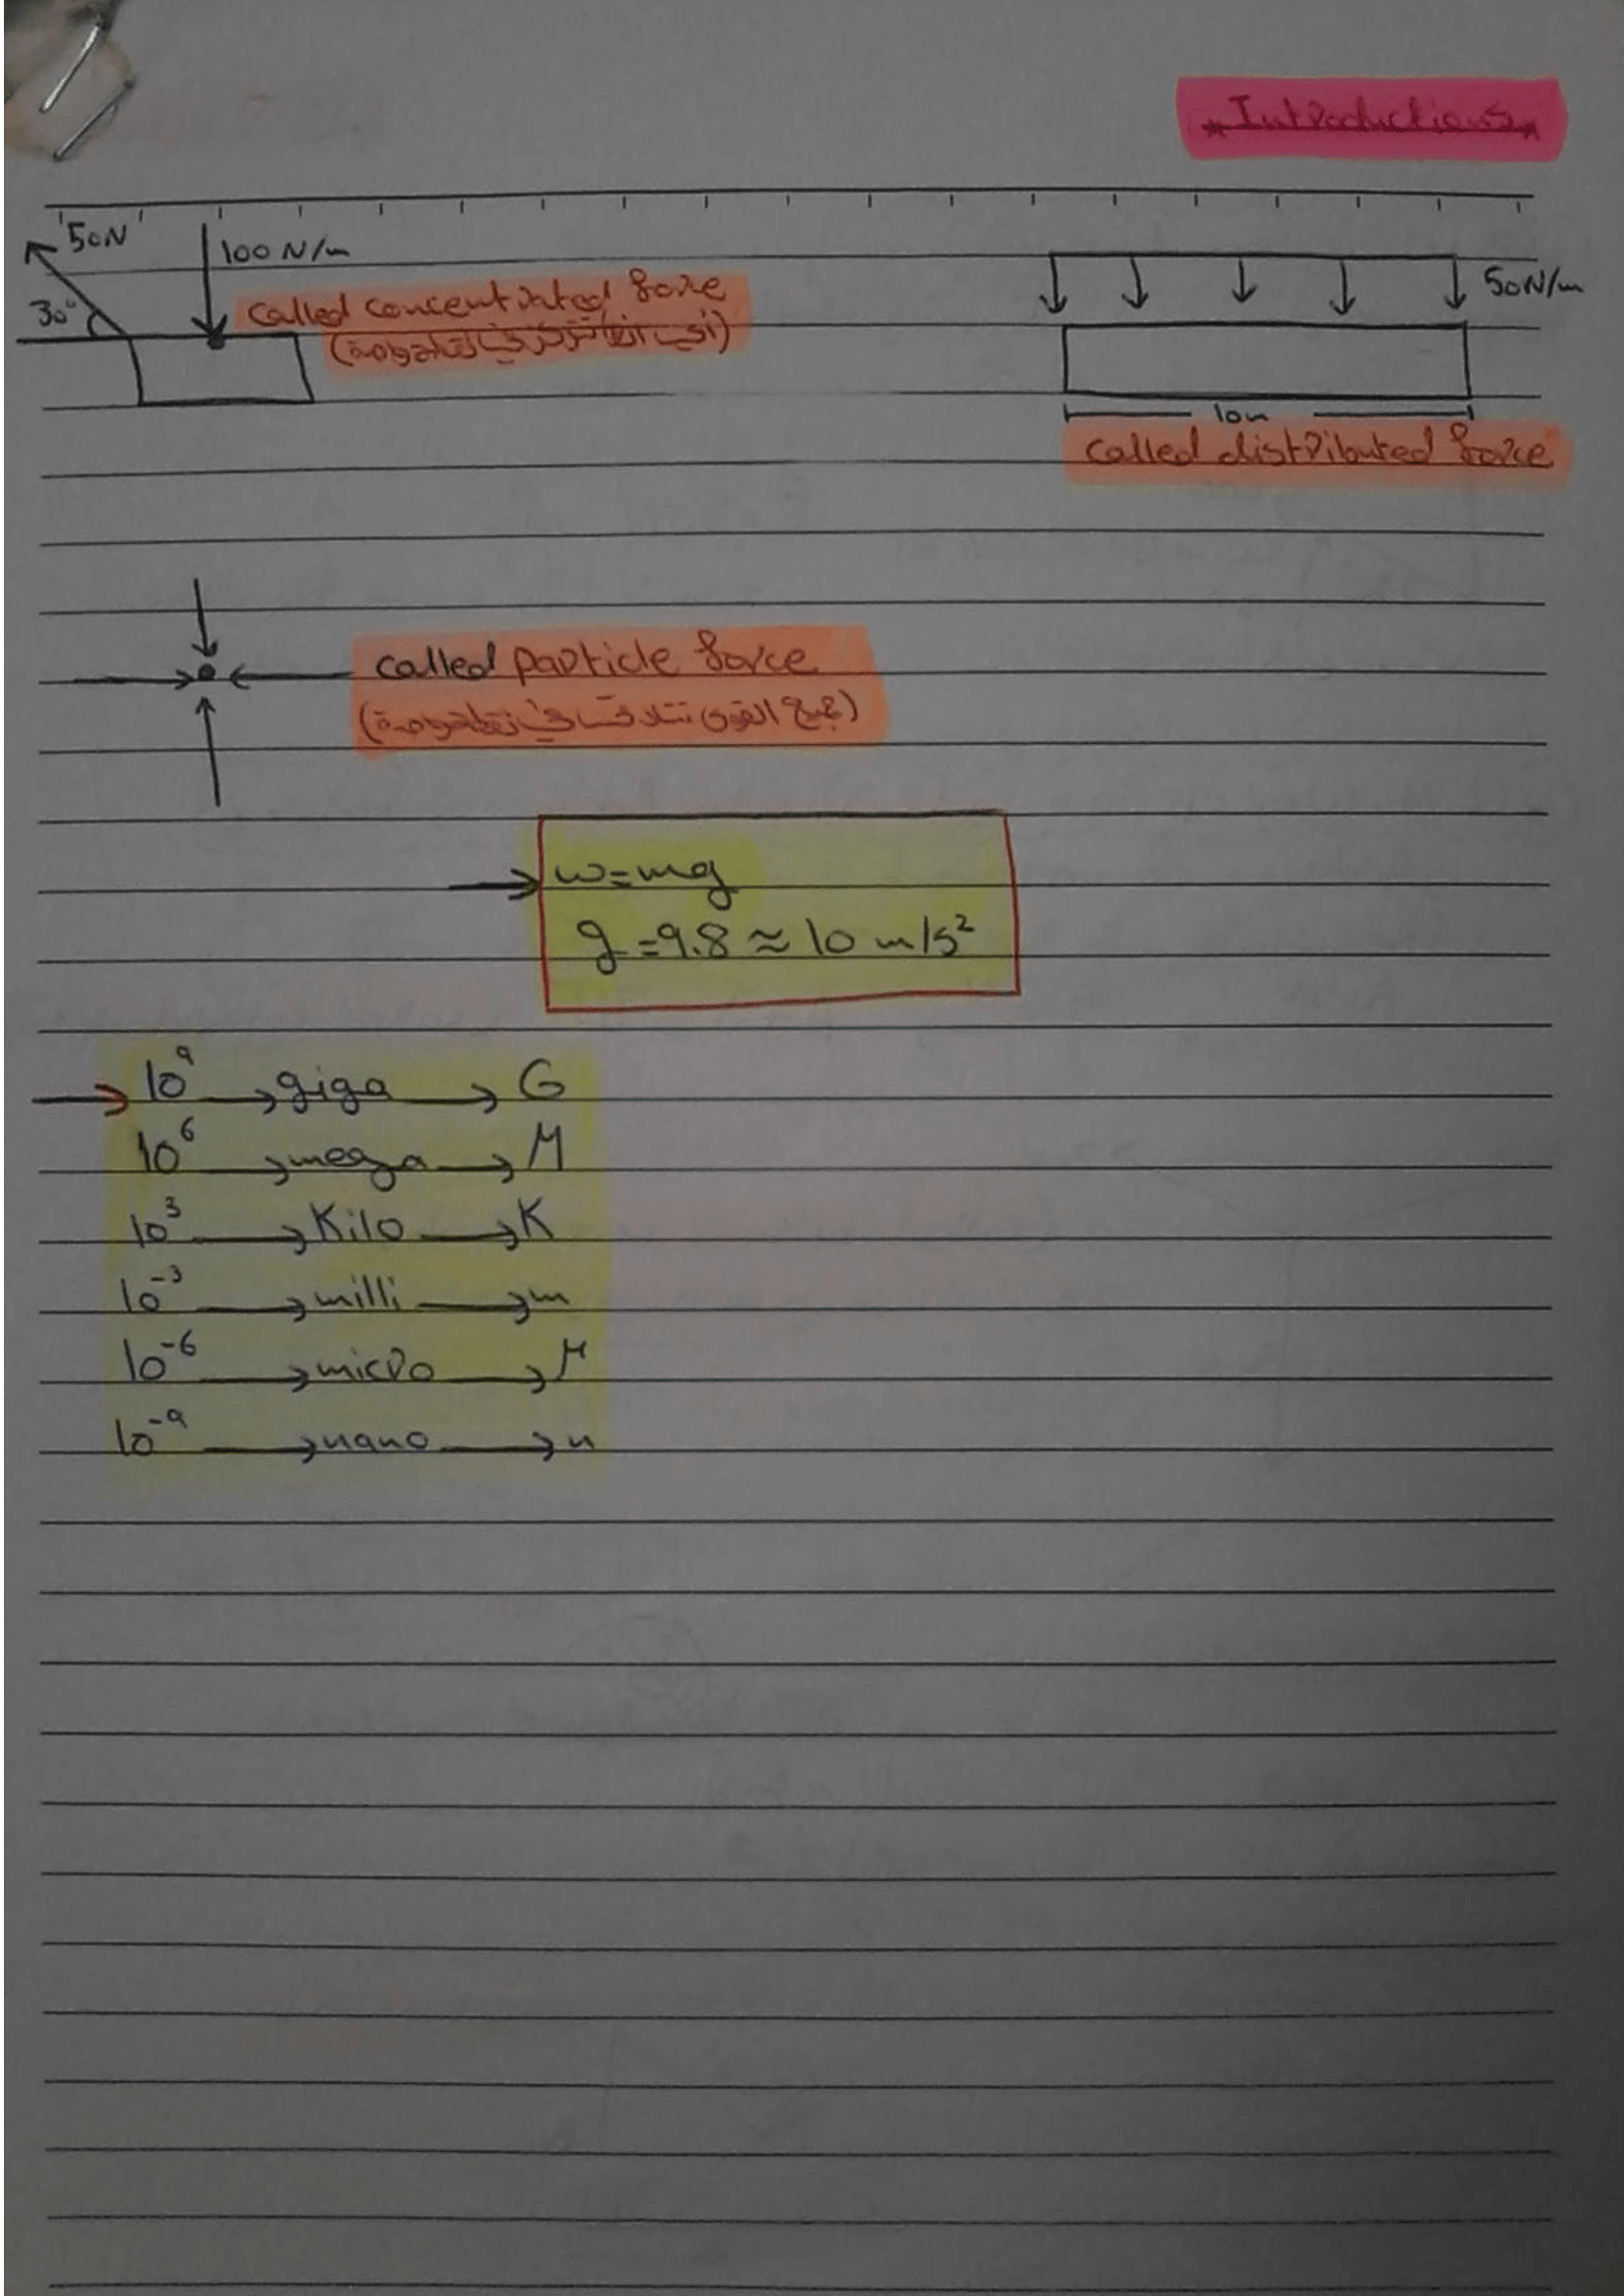 * Introductions *
50N
100 N/m
30°
called concentrated force
(أي أنها تتركز في نقطة واحدة)
50N/m
10m
called distributed force
called particle force
(جميع القوى تتلاقى في نقطة واحدة)
w=mg
g=9.8≈10 m/s²
10⁹ → giga → G
10⁶ → mega → M
10³ → Kilo → K
10⁻³ → milli → m
10⁻⁶ → micro → μ
10⁻⁹ → nano → n